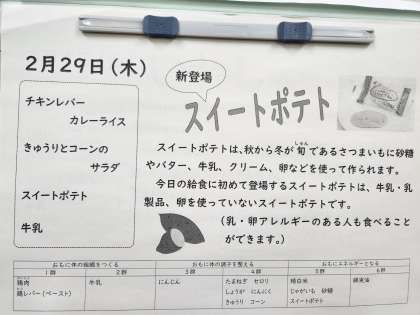 2月29日(木)
新登場
スイートポテト
チキンレバー
カレーライス
きゅうりとコーンの
サラダ
スイートポテト
牛乳
スイートポテトは、秋から冬が旬であるさつまいもに砂糖
しゅん
やバター、牛乳、クリーム、卵などを使って作られます。
今日の給食に初めて登場するスイートポテトは、牛乳・乳
製品、卵を使っていないスイートポテトです。
(乳・卵アレルギーのある人も食べること
ができます。)
おもに体の組織をつくる おもに体の調子を整える おもにエネルギーとなる
1群 2群 3群 4群 5群 6群
鶏肉 牛乳 にんじん たまねぎ セロリ 精白米
鶏レバー(ペースト) しょうが にんにく じゃがいも 砂糖
きゅうり コーン スイートポテト